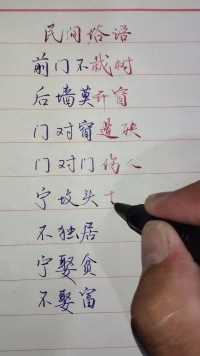 民间俗语
前门不栽树
后墙莫开窗
门对窗遭殃
门对门伤人
宁坟头
不独居
宁娶贫
不娶富